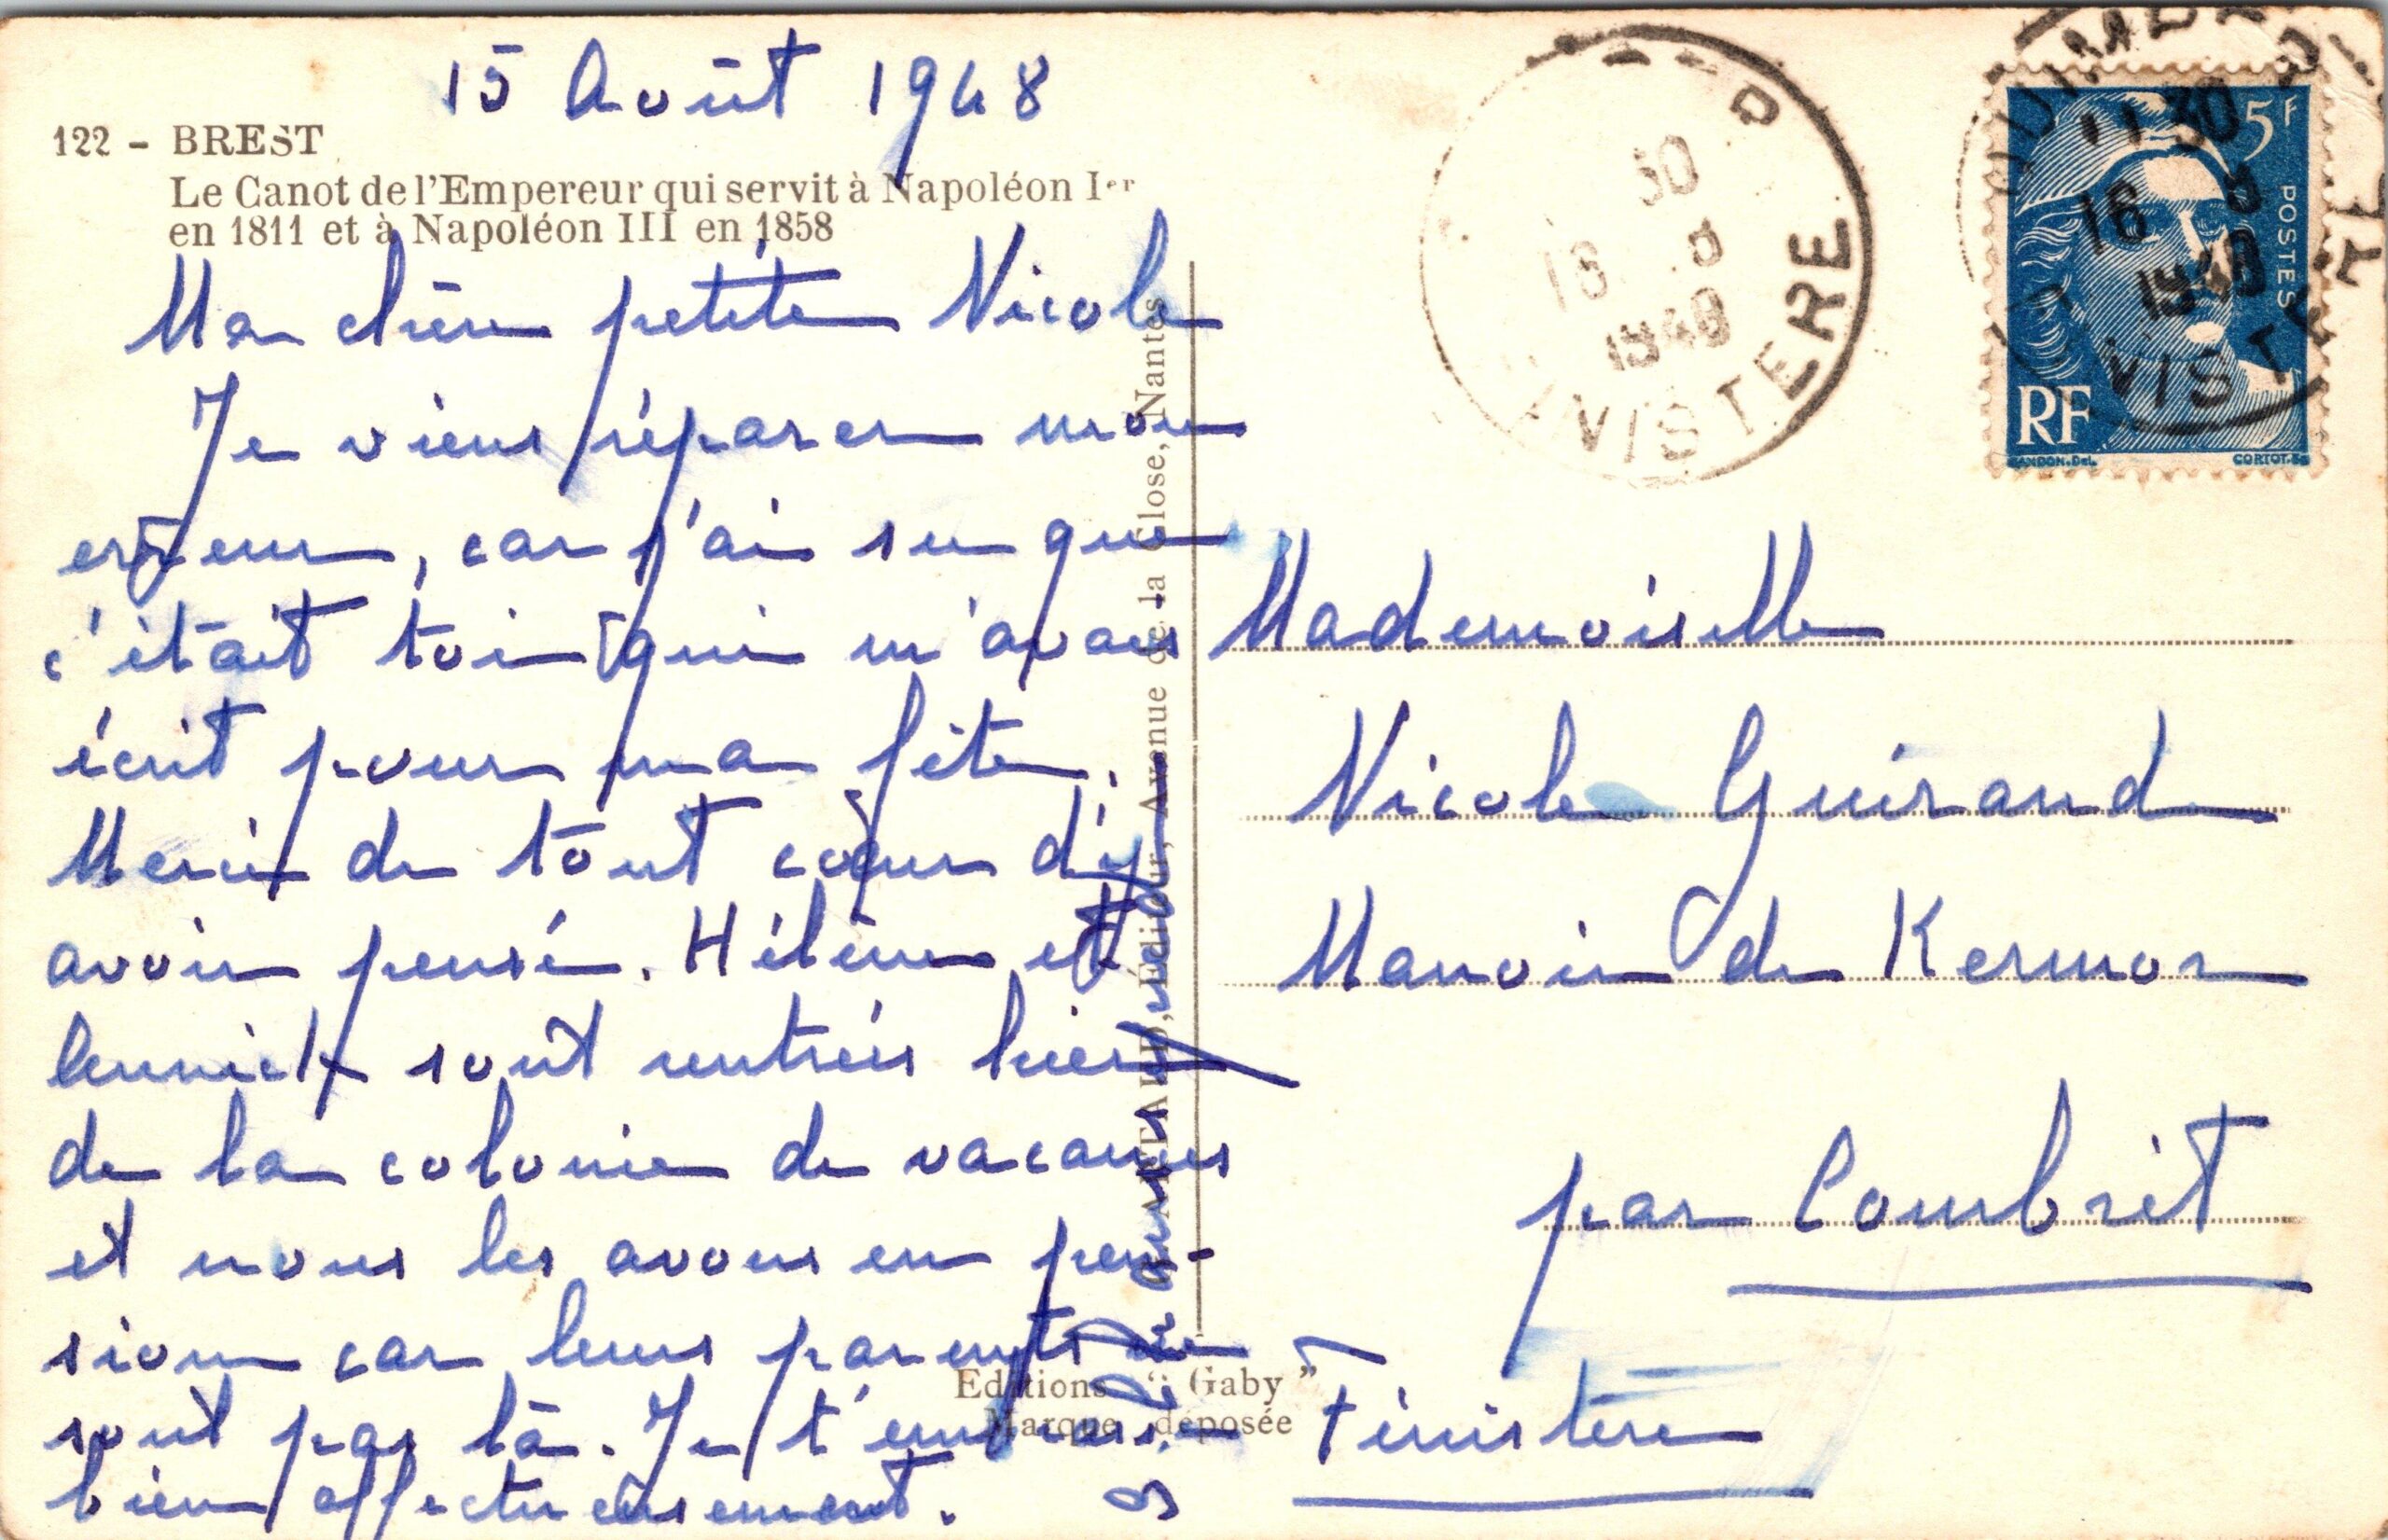 15 Août 1948
122 - BREST
Le Canot de l'Empereur qui servit à Napoléon Ier
en 1811 et à Napoléon III en 1858
Ma chère petite Nicole
Je viens réparer mon
erreur, car j'ai su que
c'était toi qui m'avais
écrit pour ma fête.
Merci de tout cœur d'y
avoir pensé. Hélène et
sont rentrés hier
de la colonie de vacances
et nous les avons en pen-
sion car leurs parents ne
sont pas là. Je t'embrasse
bien affectueusement.
Éditeur, Avenue de la Close, Nantes
Editions "Gaby"
Marque déposée
30
1948
FINISTERE
QUIMPER
30
16 8
1948
5F
POSTES
RF
GANDON.Del.
CORTOT.Sc
Mademoiselle
Nicole Guiraud
Manoir de Kermor
par Combrit
Finistère